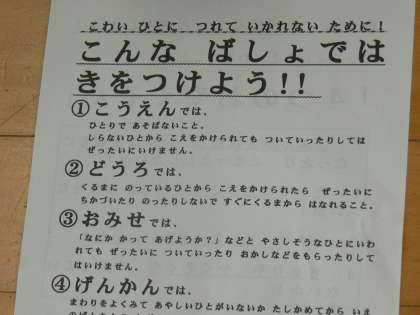 こわい ひとに つれて いかれない ために!
こんな ばしょでは
きをつけよう!!
①こうえんでは、
ひとりで あそばないこと。
しらないひとから こえをかけられても ついていったりしては
ぜったいにいけません。
②どうろでは、
くるまに のっているひとから こえをかけられたら ぜったいに
ちかづいたり のったりしないで すぐにくるまから はなれること。
③おみせでは、
「なにか かって あげようか?」などと やさしそうなひとにいわ
れても ぜったいに ついていったり おかしなどをもらったりして
はいけません。
④げんかんでは、
まわりをよくみて あやしいひとがいないか たしかめてから いえ